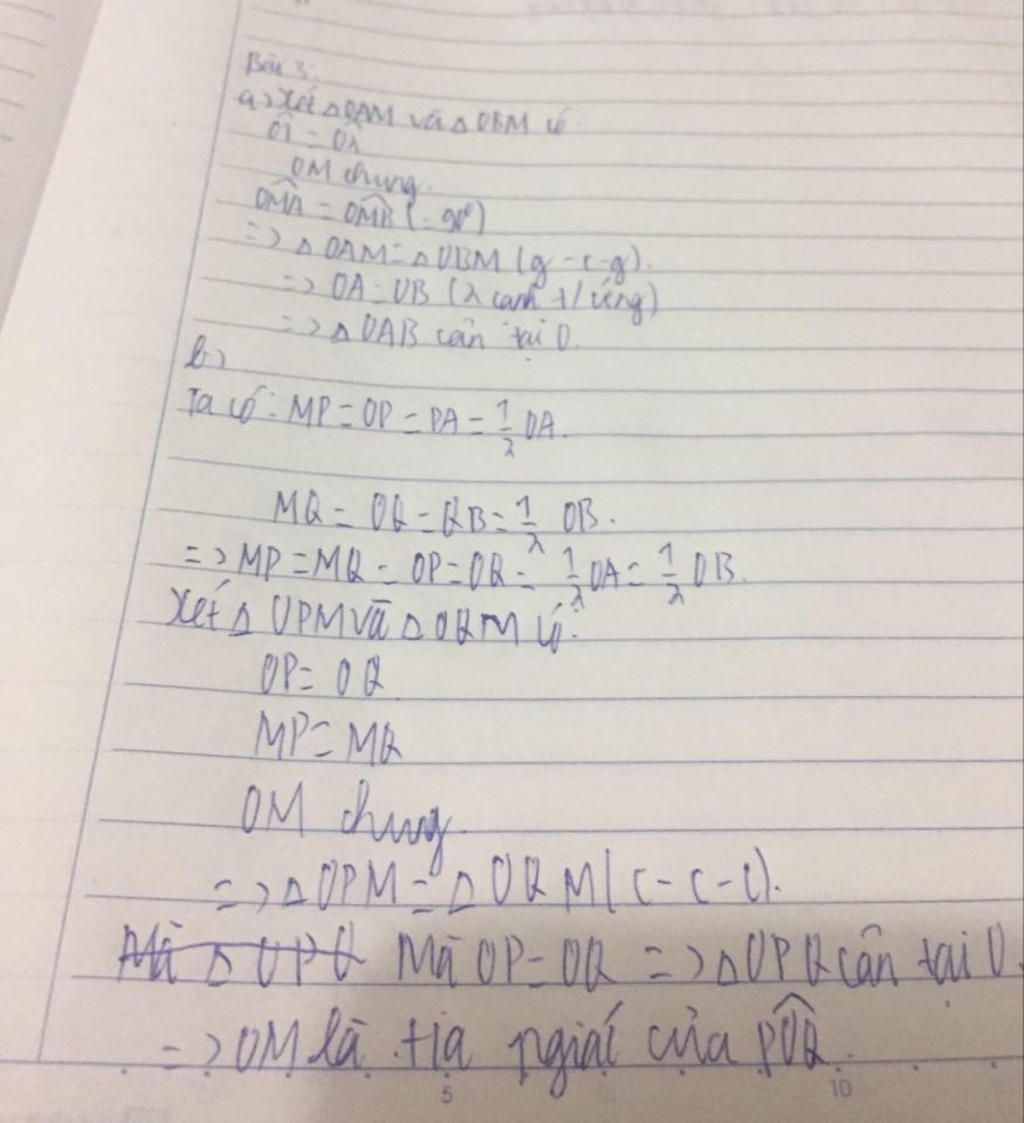 Bài 3:
a) Xét △OAM và △OBM có
Ô1 = Ô2
OM chung.
OMA = OMB (= 90°)
=> △OAM = △OBM (g-c-g).
=> OA = OB (2 cạnh t/ứng)
=> △OAB cân tại O.
b)
Ta có: MP = OP = PA = 1/2 OA.
MQ = OQ = QB = 1/2 OB.
=> MP = MQ = OP = OQ = 1/2 OA = 1/2 OB.
Xét △OPM và △OQM có:
OP = OQ
MP = MQ
OM chung.
=> △OPM = △OQM (c-c-c).
Mà △OPQ Mà OP = OQ => △OPQ cân tại O.
=> OM là tia pgiác của POQ.
5 10